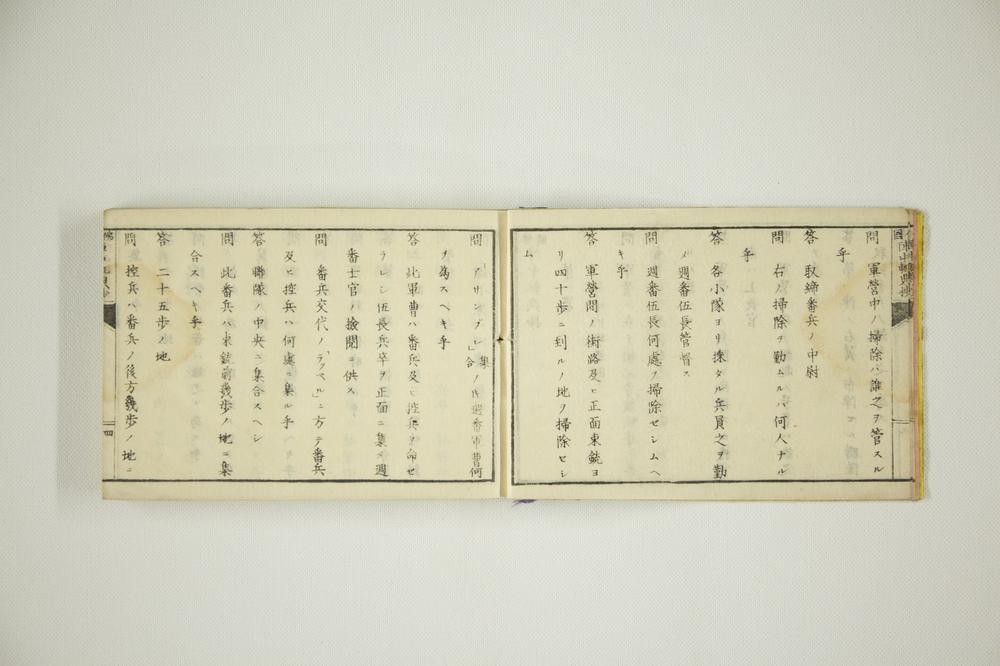 問 軍營中ノ掃除ハ誰之ヲ管スル
乎
答 取締番兵ノ中尉
問 右ノ掃除ヲ勤ムルハ何人ナル
乎
答 各小隊ヨリ揀タル兵員之ヲ勤
メ週番伍長管督ス
問 週番伍長何處ヲ掃除セシムヘ
キ乎
答 軍營間ノ街路及ヒ正面束銃ヨ
リ四十歩ニ到ルノ地ヲ掃除セシ
ム
問 「アサンブレー」集合ノ時週番軍曹何
ヲ為スヘキ乎
答 此軍曹ハ番兵及ヒ控兵ヲ命セ
ラレシ伍長兵卒ヲ正面ニ集メ週
番士官ノ撿閲ニ供ス
問 番兵交代ノ「ラッペル」ニ方テ番兵
及ヒ控兵ハ何處ニ集ル乎
答 聯隊ノ中央ニ集合スヘシ
問 此番兵ハ束銃前幾歩ノ地ニ集
合スヘキ乎
答 二十五歩ノ地
問 控兵ハ番兵ノ後方幾歩ノ地ニ
四